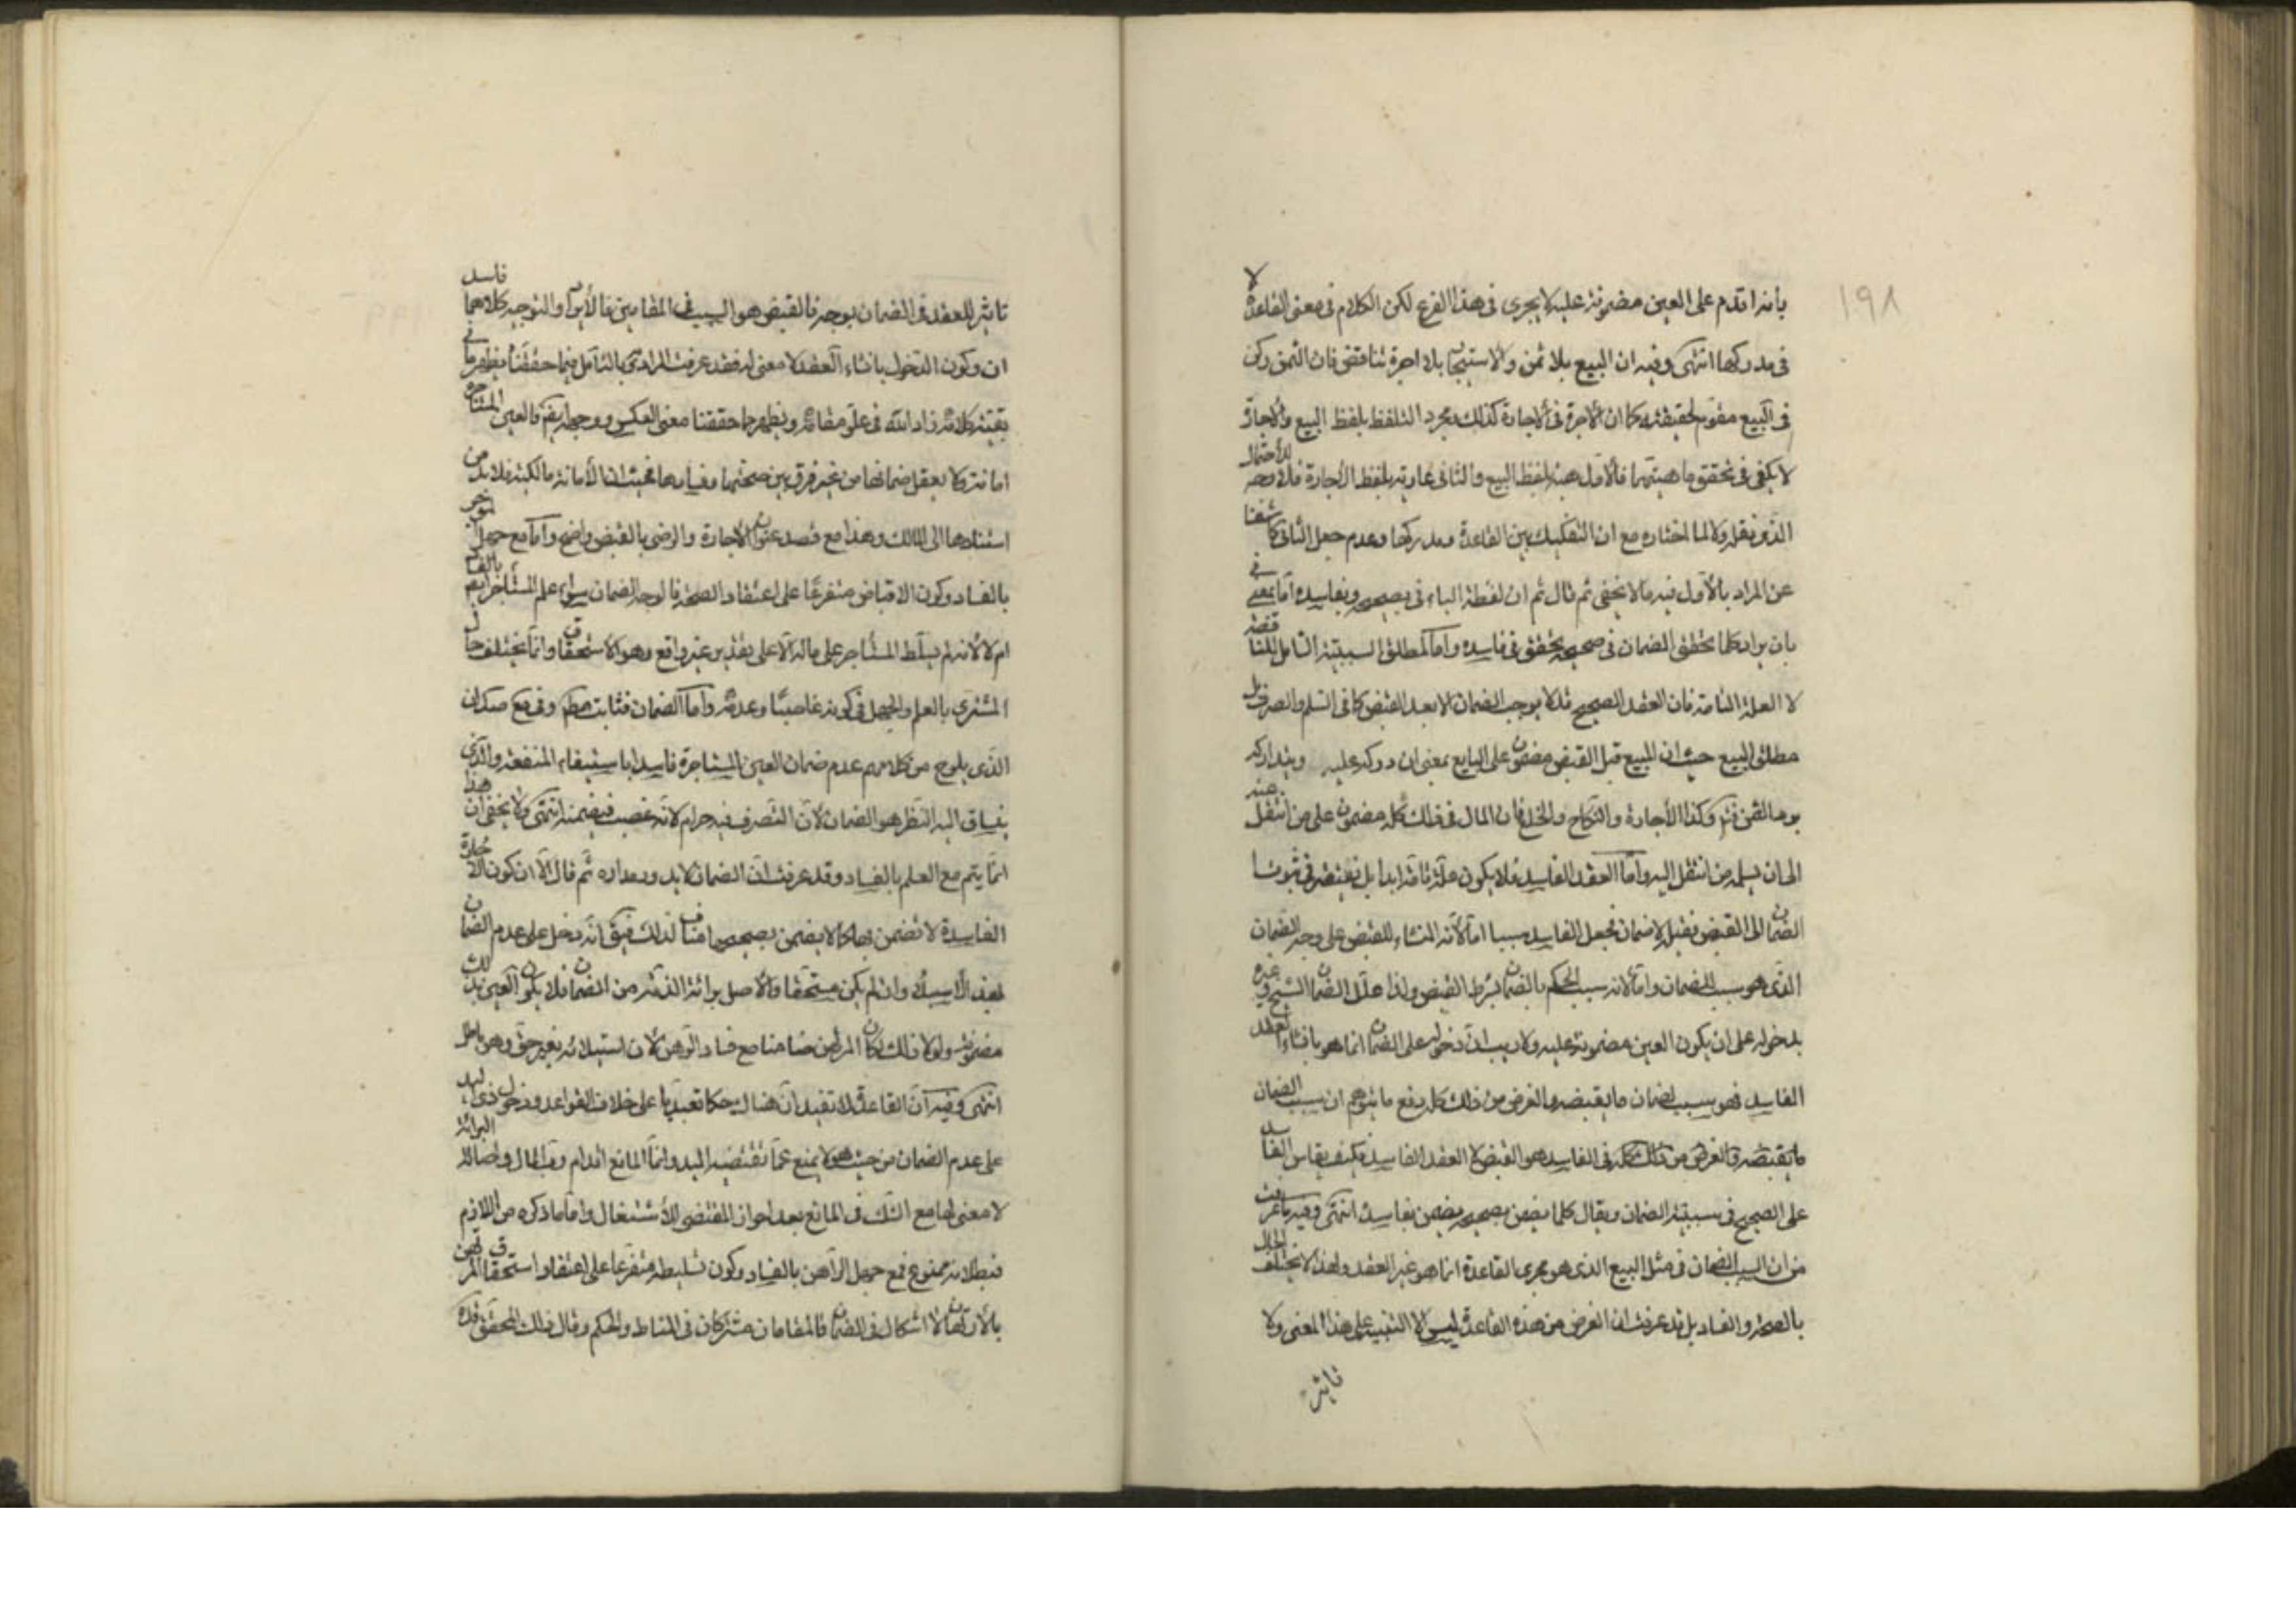 ١٩٨
بأنه اقدم على العين مضمونة عليه لا يجرى فى هذا الفرع لكن الكلام فى معنى القاعدة لا
فى مدركها انتهى وفيه ان البيع بلا ثمن والاستيجار بلا اجرة تناقض فان الثمن ركن
فى البيع مقوم لحقيقته كما ان الاجرة فى الاجارة كذلك ومجرد التلفظ بلفظ البيع والاجارة
لا يكفى فى تحقق ماهيتهما فالاول هبة بلفظ البيع والثانى عارية بلفظ الاجارة فلا وجه للاحتمال
الذى نقله ولا لما اختاره مع ان التفكيك بين القاعدة ومدركها وعدم جعل الثانى كاشفا
عن المراد بالاول فيه ما لا يخفى ثم قال ثم ان لفظة الباء فى بصحيحه وبفاسده اما بمعنى فى
بان يراد كلما تحقق الضمان فى صحيحه تحقق فى فاسده واما لمطلق السببية الشامل للناقصة
لا العلة التامة فان العقد الصحيح قد لا يوجب الضمان الا بعد القبض كما فى السلم والصرف بل
مطلق البيع حيث ان المبيع قبل القبض مضمون على البايع بمعنى ان دركه عليه ويتداركه
برد الثمن فتم وكذا الاجارة والنكاح والخلع فان المال فى ذلك كله مضمون على من انتقل عنه
الى ان يسلمه من انتقل اليه واما العقد الفاسد فلا يكون علة تامة ابدا بل يفتقر فى ثبوت
الضمان الى القبض فقبله لا ضمان فجعل الفاسد سببا اما لأنه المنشاء للقبض على وجه الضمان
الذى هو سبب للضمان واما لانه سبب الحكم بالضمان بشرط القبض ولذا علل الضمان الشيخ وغيره
بدخوله على ان يكون العين مضمونة عليه ولا ريب ان دخوله على الضمان انما هو بانشاء العقد
الفاسد فهو سبب لضمان ما يقبضه والغرض من ذلك كله دفع ما يتوهم ان سبب الضمان
ما يقبضه والغرض من ذلك كله فى الفاسد هو القبض لا العقد الفاسد فكيف يقاس الفاسد
على الصحيح فى سببية الضمان ويقال كلما يضمن بصحيحه يضمن بفاسده انتهى وفيه ما عرفت
من ان السبب للضمان فى مثل البيع الذى هو مجرى القاعدة انما هو غير العقد ولهذا لا يختلف الحال
بالصحة والفساد بل قد عرفت ان الغرض من هذه القاعدة ليس الا التنبيه على هذا المعنى ولا
تاثير
تاثير للعقد فى الضمان بوجه فالقبض هو السبب فى المقامين فالأيراد والتوجيه كلاهما فاسد
ان وكون الدخول بانشاء العقد لا معنى له فقد عرفت المراد به وبالتأمل فيما حققناه يظهر ما فى
بقية كلامه زاد الله فى علو مقامه ويظهر مما حققنا معنى العكس ووجهه ايضا فالعين المستأجرة
امانة ولا يعقل ضمانها من غير فرق بين صحتها وفسادها بحيث ان الأمانة مالكية فلا بد من
استنادها الى المالك وهذا مع قصد عنوان الاجارة والرضى بالقبض واضح واما مع جهل الموجر
بالفساد وكون الاقباض متفرعا على اعتقاد الصحة فالوجه الضمان سواء علم المستأجر بالفساد
ام لا لأنه لم يسلط المستأجر على ماله الا على تقدير غير واقع وهو الاستحقاق وانما يختلف حال
المشترى بالعلم والجهل فى كونه غاصبا وعدمه واما الضمان فثابت مطلقا وفى مع صد ان
الذى يلوح من كلامهم عدم ضمان العين المستاجرة فاسدا باستيفاء المنفعة والذى
ينساق اليه النظر هو الضمان لأن التصرف فيه حرام لانه غصب فيضمنه انتهى ولا يخفى ان هذا
انما يتم مع العلم بالفساد وقد عرفت ان الضمان لا يدور مداره ثم قال الا ان كون الاجارة
الفاسدة لا تضمن بها كما لا يضمن بصحيحها مناف لذلك فيق انه دخل على عدم الضمان
بهذا الاستيلاء وان لم يكن مستحقا والاصل برائة الذمة من الضمان فلا يكون العين بذلك
مضمونة ولولا ذلك لكان المرتهن ضامنا مع فساد الرهن لأن استيلائه بغير حق وهو باطل
انتهى وفيه ان القاعدة لا تفيد ان هناك حكما تعبديا على خلاف القواعد ودخول ذى اليد
على عدم الضمان من حيث هو لا يمنع عما تقتضيه اليد وانما المانع اقدام رب المال واصالة البرائة
لا معنى لها مع الشك فى المانع بعد احراز المقتضى للأشتغال واما ما ذكره من اللازم
فبطلانه ممنوع فمع جهل الراهن بالفساد وكون تسليطه متفرعا على اعتقاد استحقاق المرتهن
بالأرتهان لا اشكال فى الضمان فالمقامان مشتركان فى المناط والحكم وقال ذلك المحقق قده